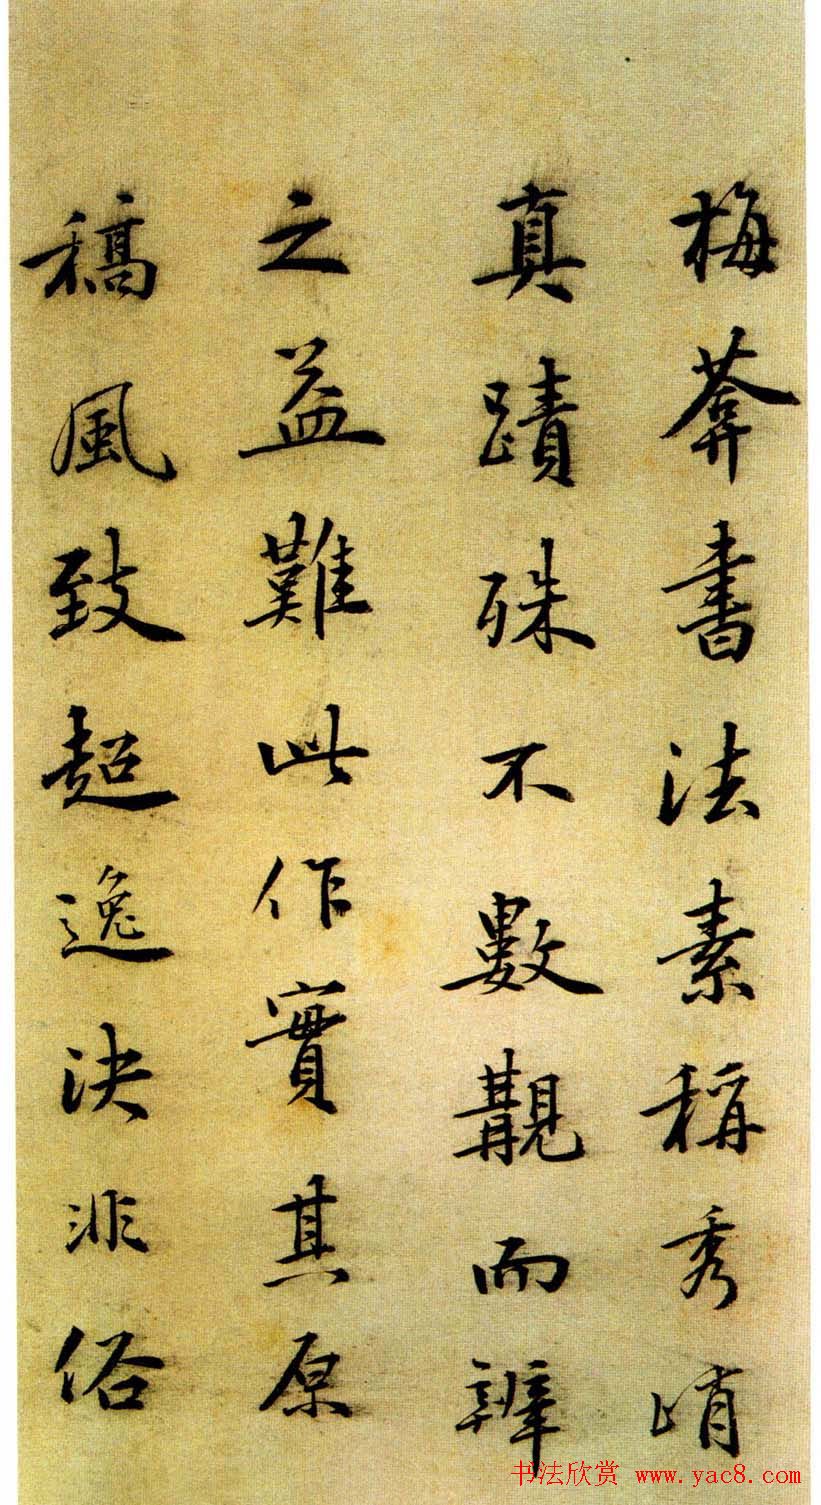 梅葊書法素稱秀峭
真蹟殊不數覯而辨
之益難此作實其原
稿風致超逸決非俗
书法欣赏 www.yac8.com